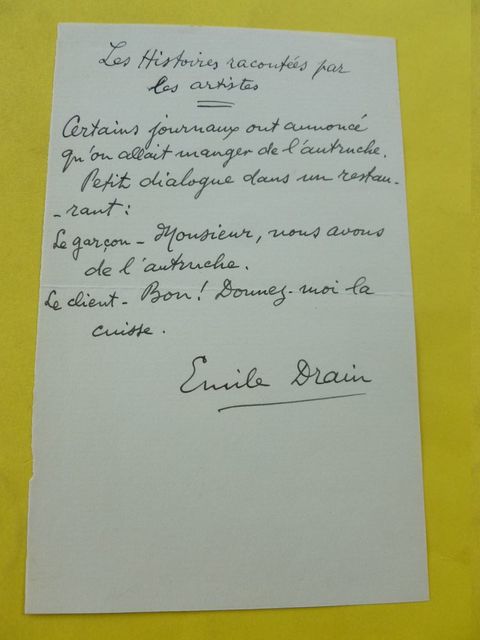 Les Histoires racontées par
les artistes
Certains journaux ont annoncé
qu'on allait manger de l'autruche.
Petit dialogue dans un restau-
-rant :
Le garçon - Monsieur, nous avons
de l'autruche.
Le client - Bon ! Donnez-moi la
cuisse.
Emile Drain